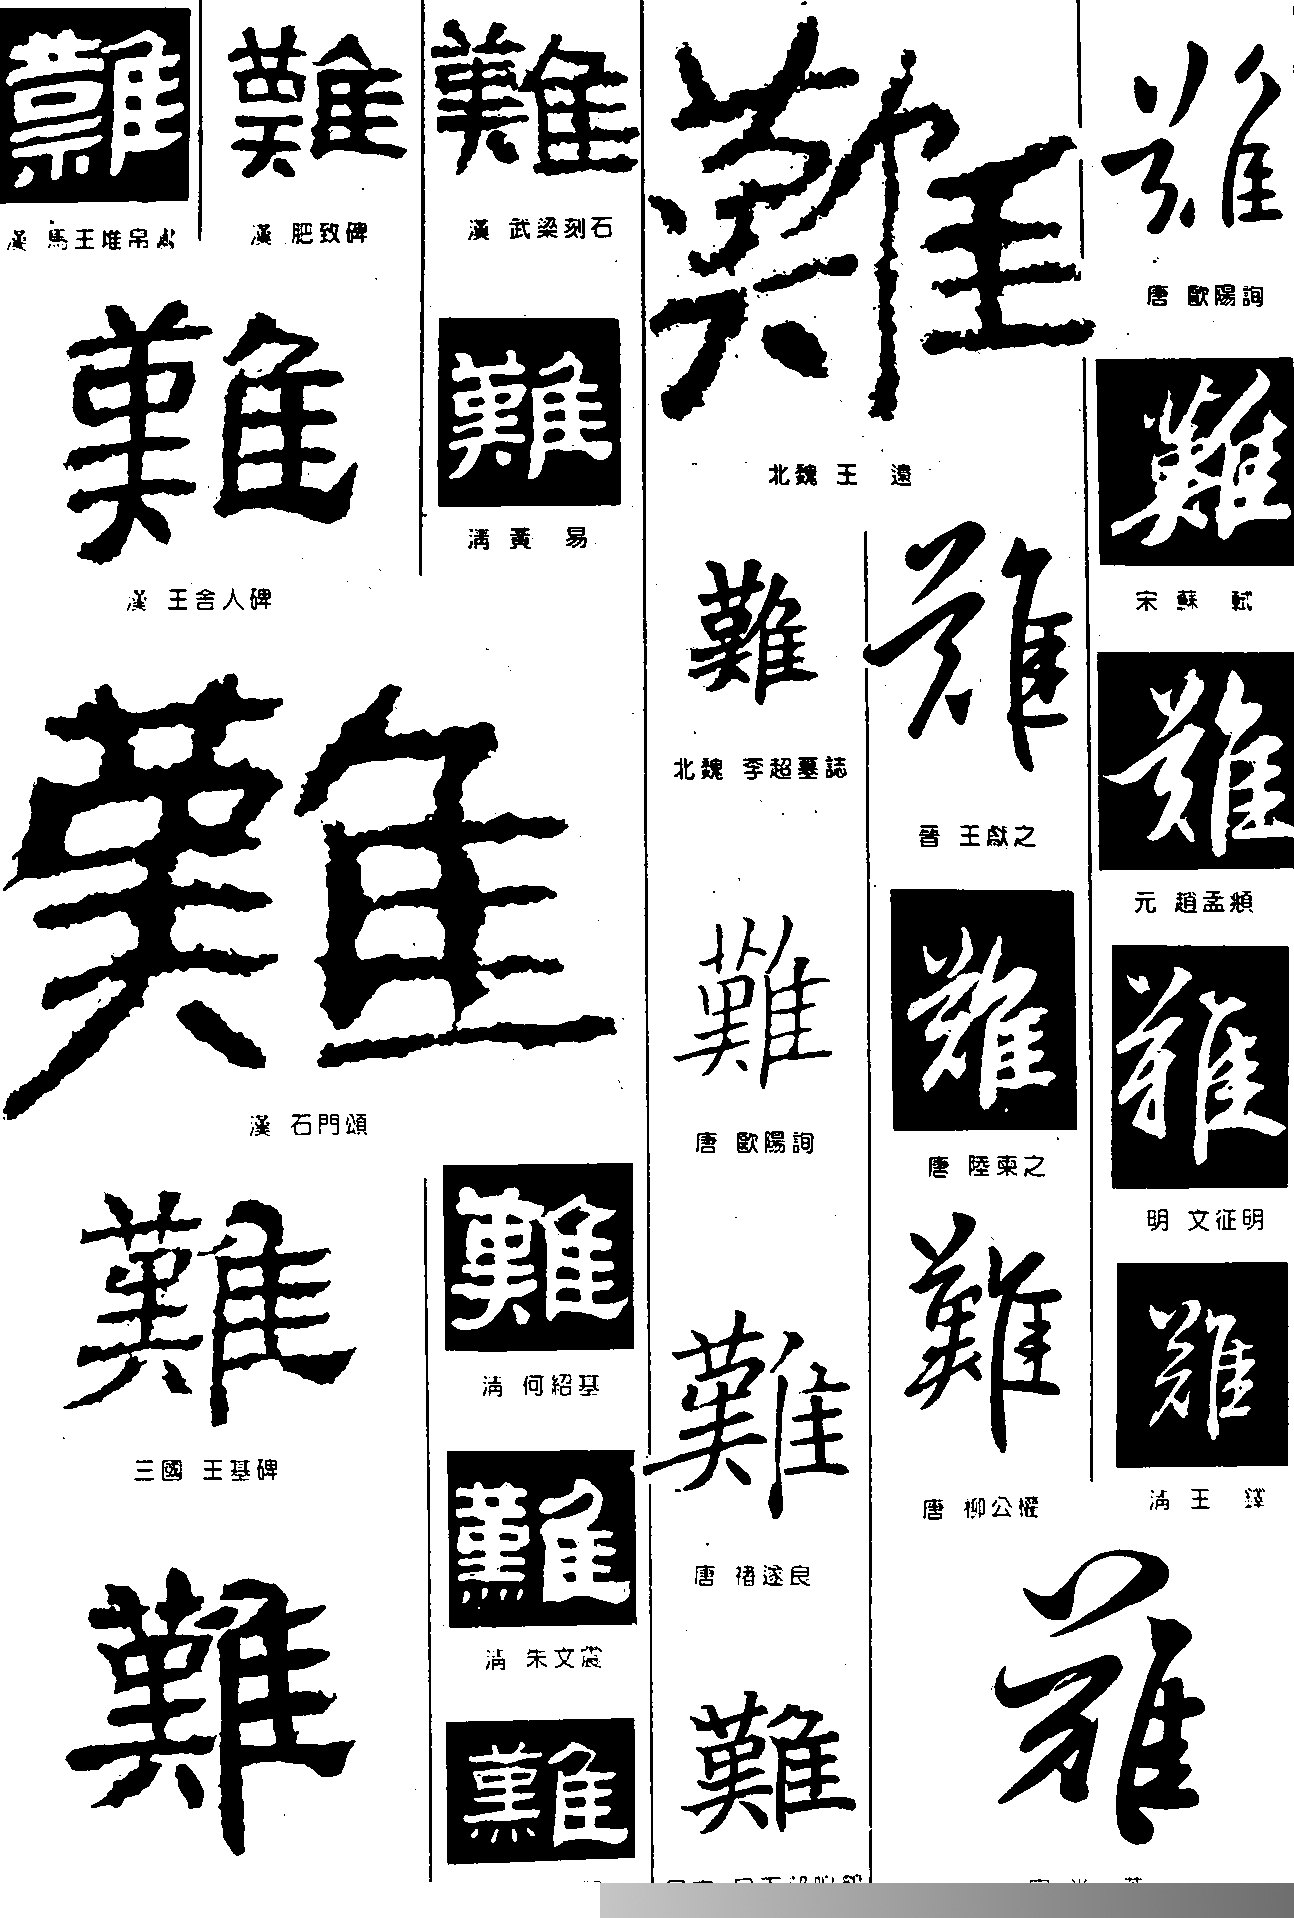 難
漢 馬王堆帛書
難
漢 肥致碑
難
漢 武梁刻石
難
漢 王舍人碑
難
清 黃 易
難
漢 石門頌
難
三國 王基碑
難
難
清 何紹基
難
清 朱文震
難
難
北魏 王 遠
難
北魏 李超墓誌
難
唐 歐陽詢
難
唐 褚遂良
難
難
晉 王獻之
難
唐 陸柬之
難
唐 柳公權
難
唐 歐陽詢
難
宋 蘇 軾
難
元 趙孟頫
難
明 文征明
難
清 王 鐸
難